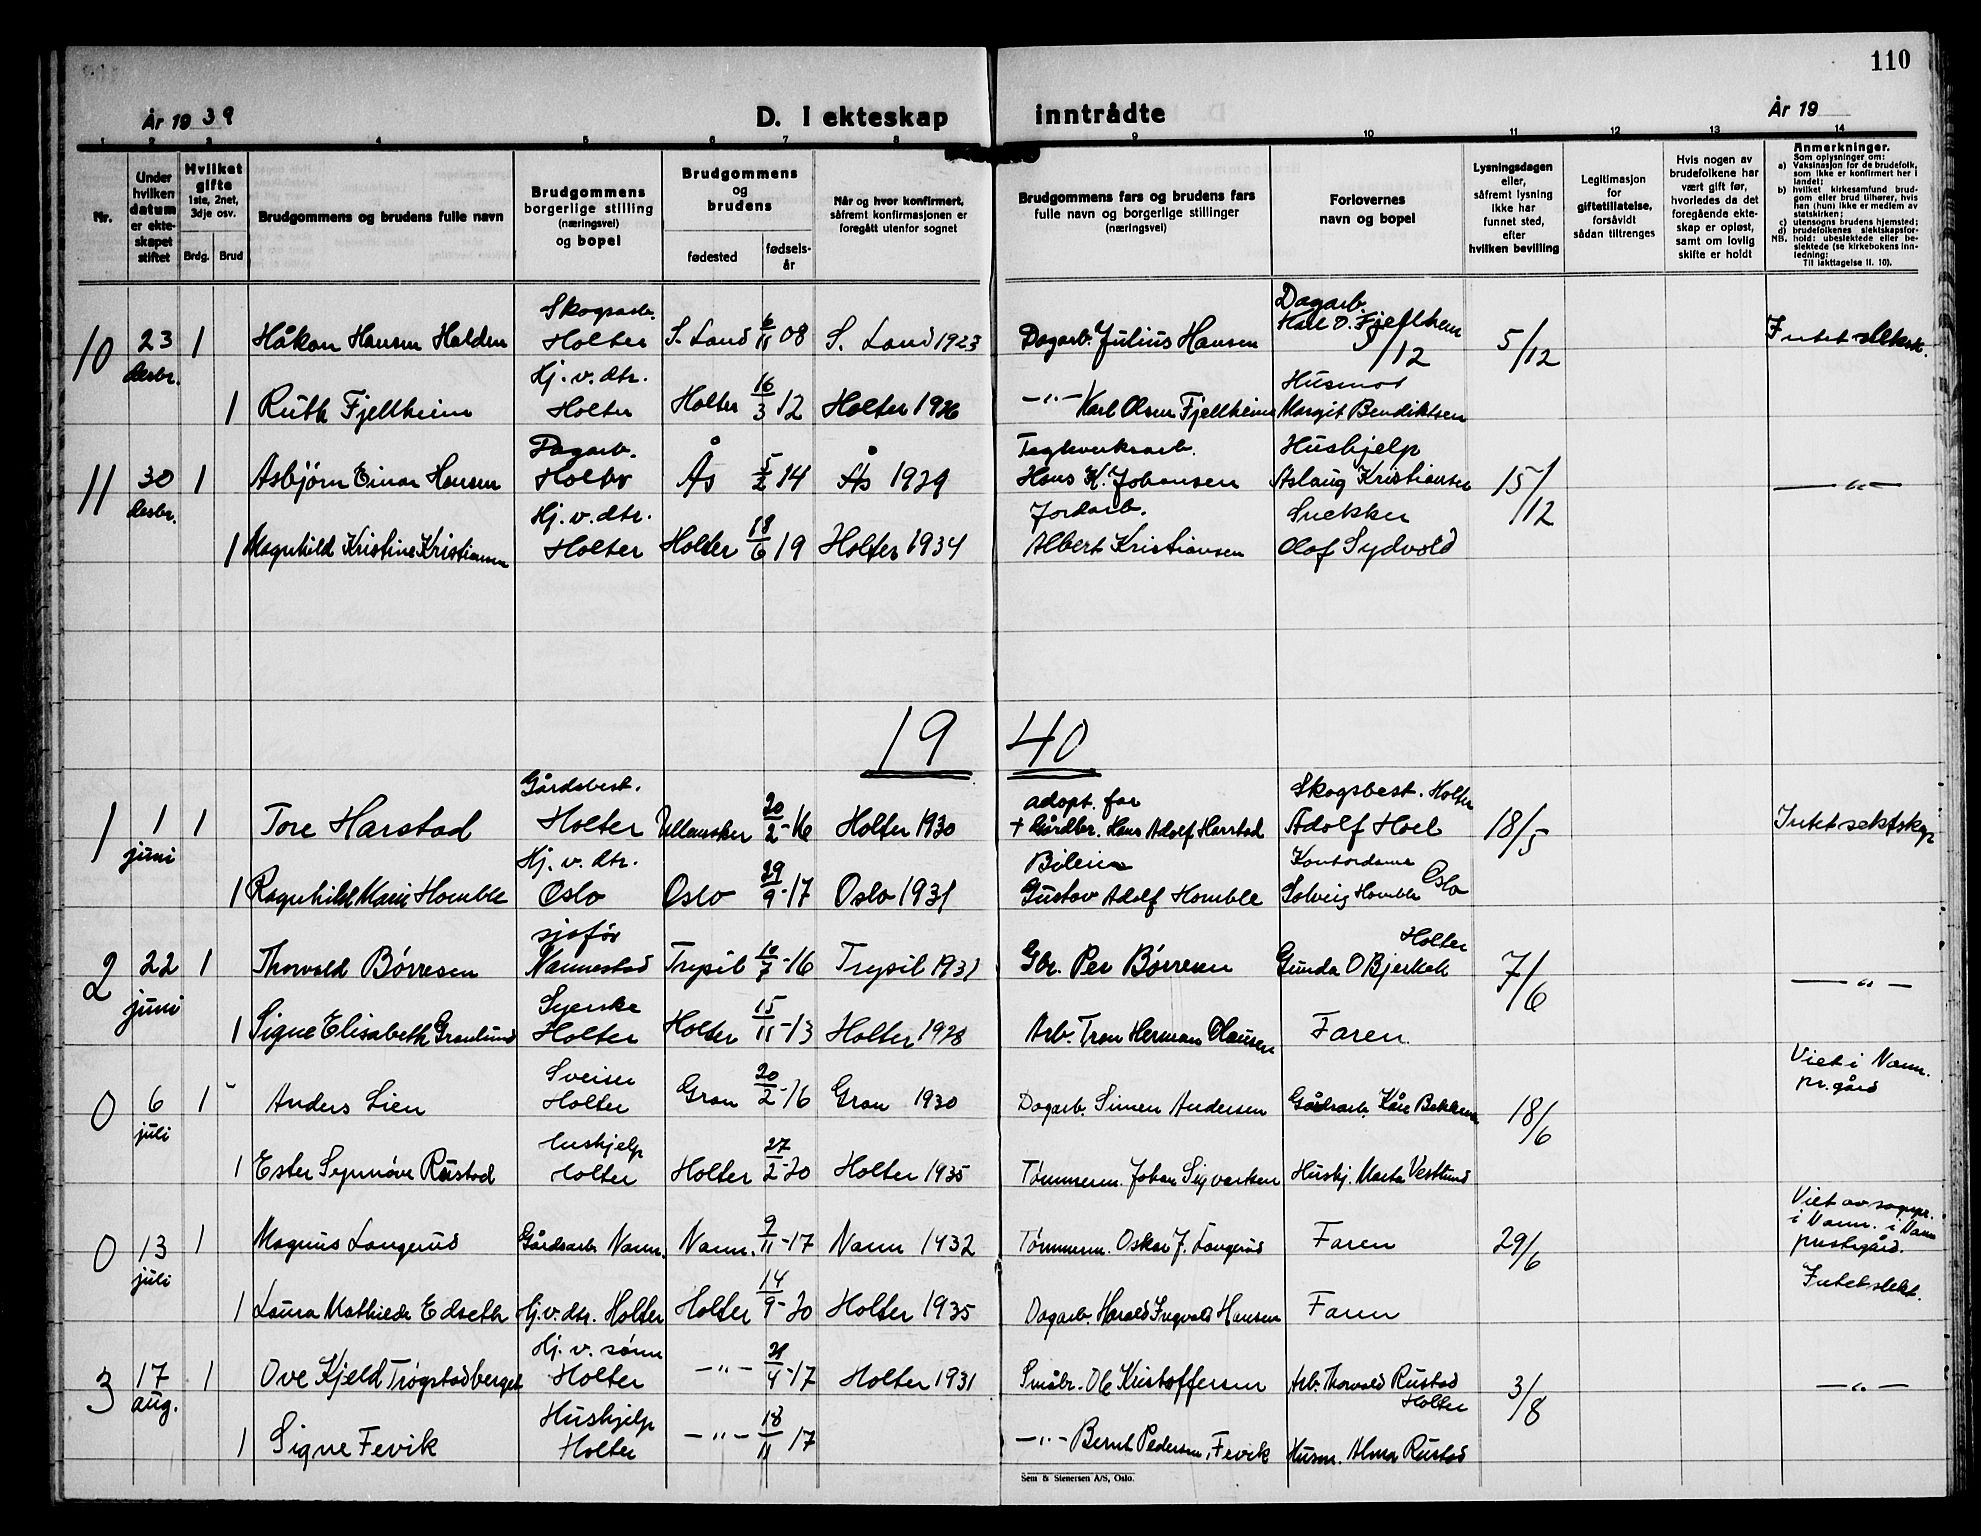 110
År 1939 D. I ekteskap inntrådte År 19
1 2 3 4 5 6 7 8 9 10 11 12 13 14
Nr.
Under hvilken datum er ekte-skapet stiftet
Hvilket gifte 1ste, 2net, 3dje osv.
Brdg. Brud
Brudgommens og brudens fulle navn
Brudgommens borgerlige stilling (næringsvei) og bopel
Brudgommens og brudens
fødested fødsels-år
Når og hvor konfirmert, såfremt konfirmasjonen er foregått utenfor sognet
Brudgommens fars og brudens fars fulle navn og borgerlige stillinger (næringsvei)
Forlovernes navn og bopel
Lysningsdagen eller, såfremt lysning ikke har funnet sted, efter hvilken bevilling
Legitimasjon for giftetillatelse, forsåvidt sådan tiltrenges
Hvis nogen av brudefolkene har vært gift før, hvorledes da det foregående ekte-skap er opløst, samt om lovlig skifte er holdt
Anmerkninger.
Som oplysninger om:
a) Vaksinasjon for de brudefolk, som ikke er konfirmert her i landet;
b) hvilket kirkesamfund brud-gom eller brud tilhører, hvis han (hun) ikke er medlem av statskirken;
c) utensogns brudens hjemsted;
d) brudefolkenes slektskapsfor-
NB. hold: ubeslektede eller be-slektede (se kirkebokens inn-ledning:
Til iakttagelse II. 10).
Skogsarb. Dagarb.
10 23 desbr. 1 Håkon Hansen Halden Holter S. Land 6/11 08 S. Land 1923 Dagarb. Julius Hansen Karl O. Fjellheim 5/12 5/12 Intet slektsk.
Hj. v. dtr. Husmor
1 Ruth Fjellheim Holter Holter 16/3 12 Holter 1926 —"— Karl Olsen Fjellheim Margit Bendiktsen
Dagarb. Teglverksarb. Hushjelp
11 30 desbr. 1 Asbjørn Einar Hansen Holter Ås 5/2 14 Ås 1929 Hans K. Johansen Aslaug Kristiansen 15/12 —"—
Hj. v. dtr. Jordarb. Snekker
1 Magnhild Kristine Kristiansen Holter Holter 18/6 19 Holter 1934 Albert Kristiansen Olaf Sydvold
19 40
Gårdsbest. adopt. far Skogsbest. Holter
1 1 juni 1 Tore Harstad Holter Ullensaker 20/2-16 Holter 1930 + Gårdbr. Hans Adolf Harstad Adolf Hoel 18/5
Hj. v. dtr. Bileier Kontordame Oslo
1 Ragnhild Marie Homble Oslo Oslo 29/9-17 Oslo 1931 Gustav Adolf Homble Solveig Homble
sjåfør Holter
2 22 juni 1 Thorvald Børresen Nannestad Trysil 10/7-16 Trysil 1931 Gbr. Per Børresen Gunda O Bjerkek 7/6 —"—
Syerske
1 Signe Elisabeth Granlund Holter Holter 15/11-13 Holter 1928 Arb. Tron Herman Olausen Faren.
Sveiser Viet i Nann. pr.gård
0 6 juli 1 Anders Lien Holter Gran 20/2-16 Gran 1930 Dagarb. Simen Andersen Gårdsarb. Kåre 18/6
Hushjelp
1 Ester Synnøve Rustad Holter Holter 27/2-20 Holter 1935 Tømmerm. Johan Sigvartsen Hushj. Marta Vestlund
Viet av sognpr. i Nann. i Nann prestegård.
0 13 juli 1 Magnus Langerud Gårdsarb. Nann. Nann. 9/11-17 Nann 1932 Tømmerm. Oskar J. Langerud Faren 29/6
Intet slekt.
1 Laura Mathilde Edseth Hj. v. dtr. Holter Holter 14/9-20 Holter 1935 Dagarb. Harald Ingvald Hansen Faren
Hj. v. sønn
3 17 aug. 1 Ove Kjeld Trøgstadberget Holter —"— 21/4-17 Holter 1931 Småbr. Ole Kristoffersen Arb. Thorvald Rustad Holter 3/8 —"—
Hushjelp
1 Signe Fevik Holter —"— 18/11 17 —"— Bernt Pedersen, Fevik Husm. Alma Rustad
Sem & Stenersen A/S, Oslo.